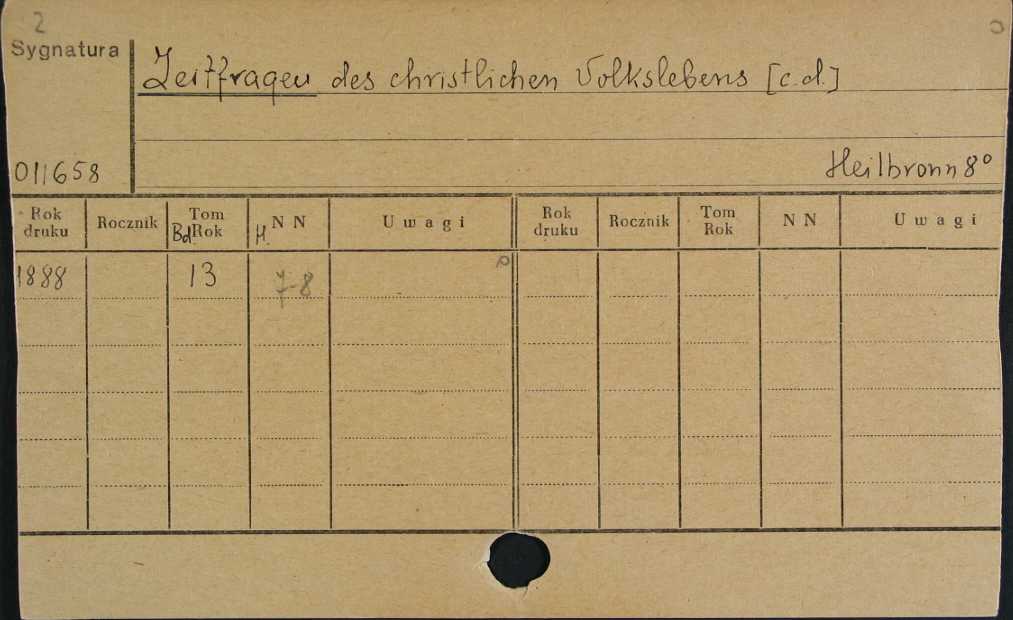 2
Sygnatura
Zeitfragen des christlichen Volkslebens [c.d.]
011658
Heilbronn 8°
Rok druku Rocznik Tom Bd. Rok H. N N Uwagi Rok druku Rocznik Tom Rok N N Uwagi
1888 13 7-8